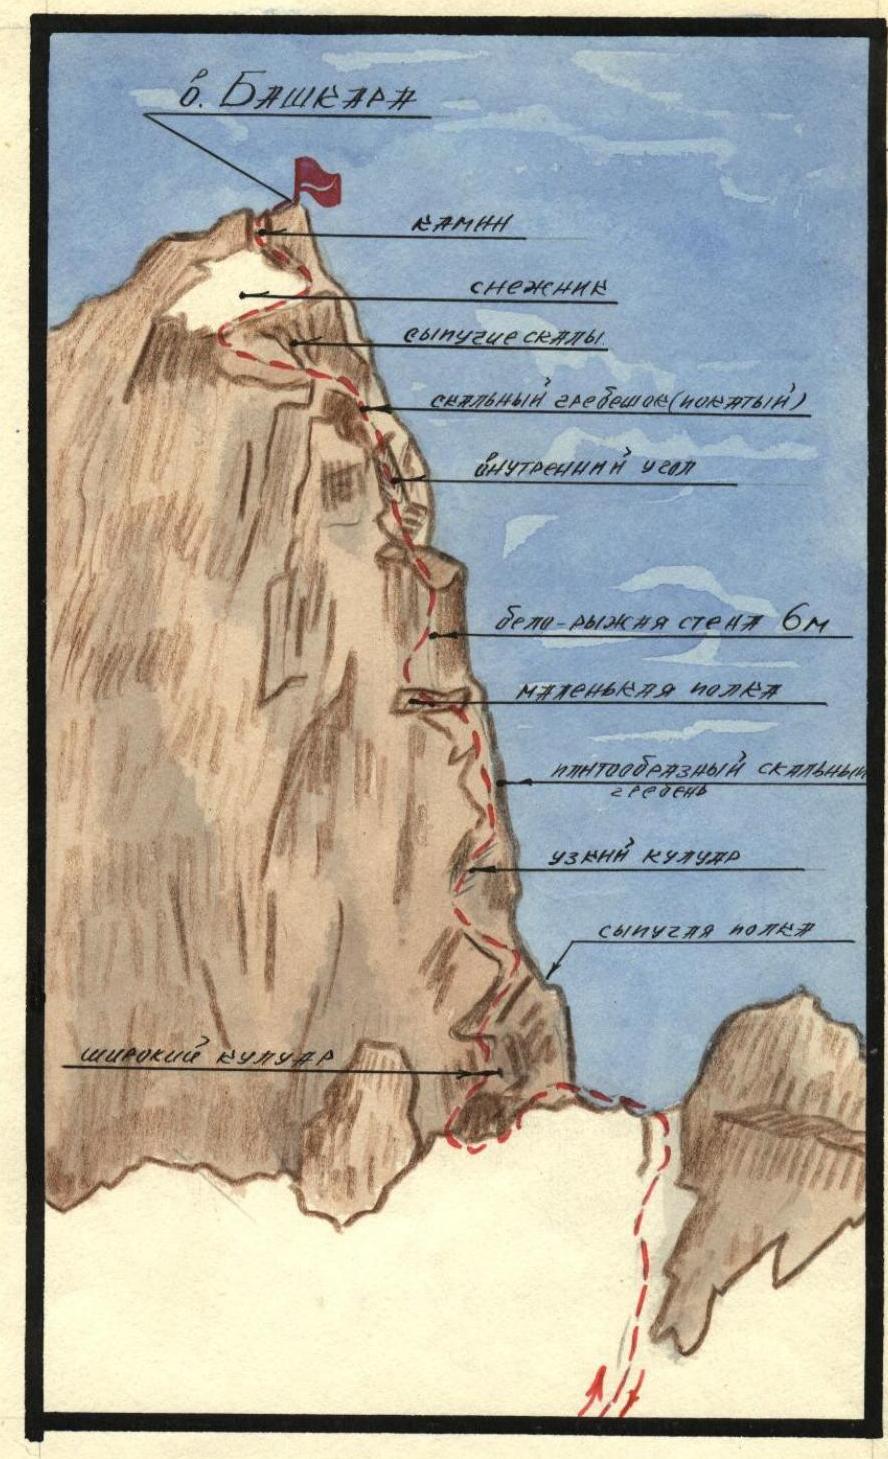 в. Башкара
камин
снежник
сыпучие скалы
скальный гребешок (покатый)
внутренний угол
бело-рыжая стена 6м
маленькая полка
плитообразный скальный
гребень
узкий кулуар
сыпучая полка
широкий кулуар